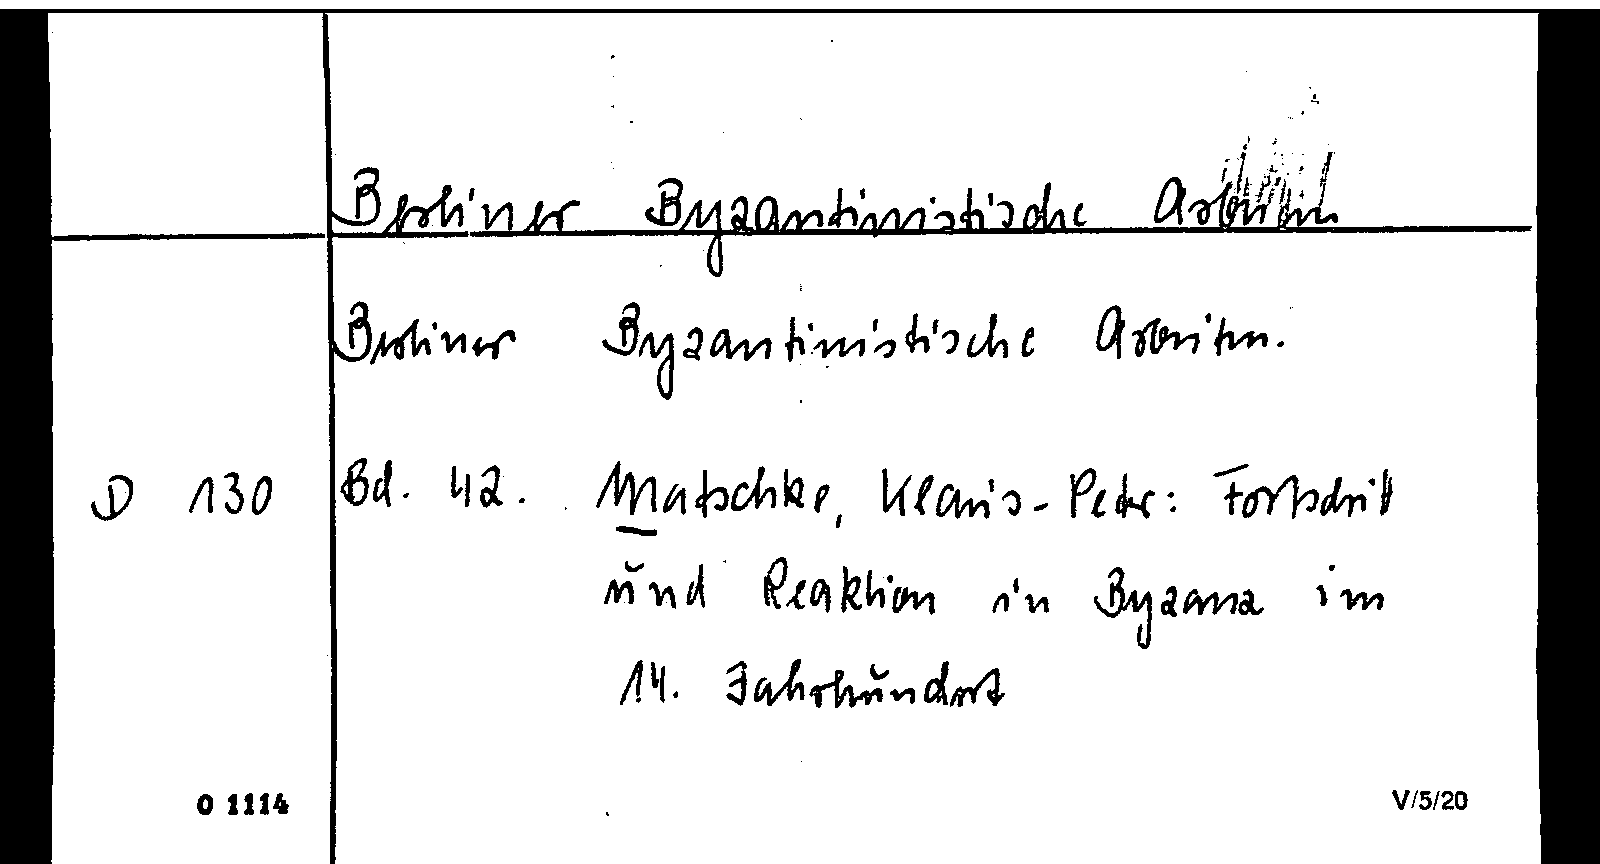 Berliner Byzantinistische Arbeiten
Berliner Byzantinistische Arbeiten.
D 130 Bd. 42. Matschke, Klaus-Peter: Fortschritt
und Reaktion in Byzanz im
14. Jahrhundert
O 1114 V/5/20